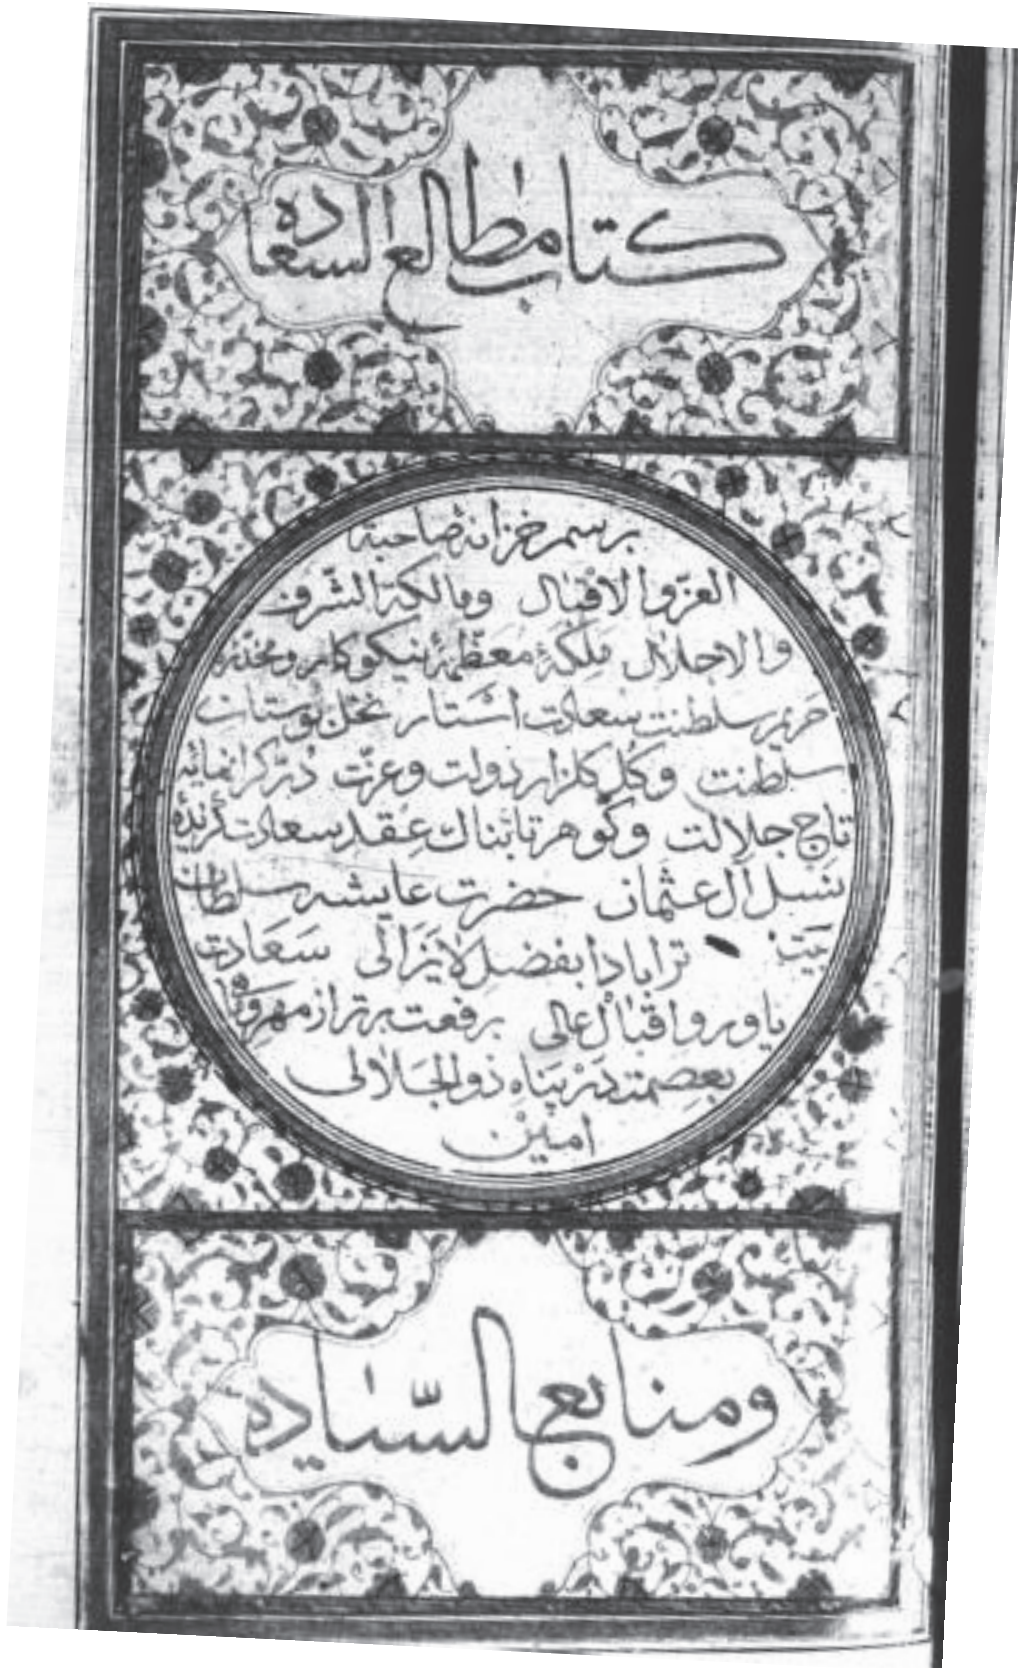 كتاب مطالع السعاده
برسم خزانۀ صاحبة
العزّ والاقبال ومالكة الشّرف
والاجلال ملكۀ معَظّمۀ نيكوكار ومخدّرۀ
حريم سلطنت سعادت استار نخل بوستان
سلطنت وكُل كلزار دولت وعزّت دُرّ كرانمايۀ
تاج جلالت وكَوهر تابناك عِقد سعادت زبدۀ
نسل آل عثمان حضرت عايشه سلطان
بَيت ترا بادا بفضل لايَزالى سَعادت
ياور واقبال عالى برفعت برتر از مهر
بعِصمت دَر پناهِ ذو الجَلالى
امين
ومنابع السّياده